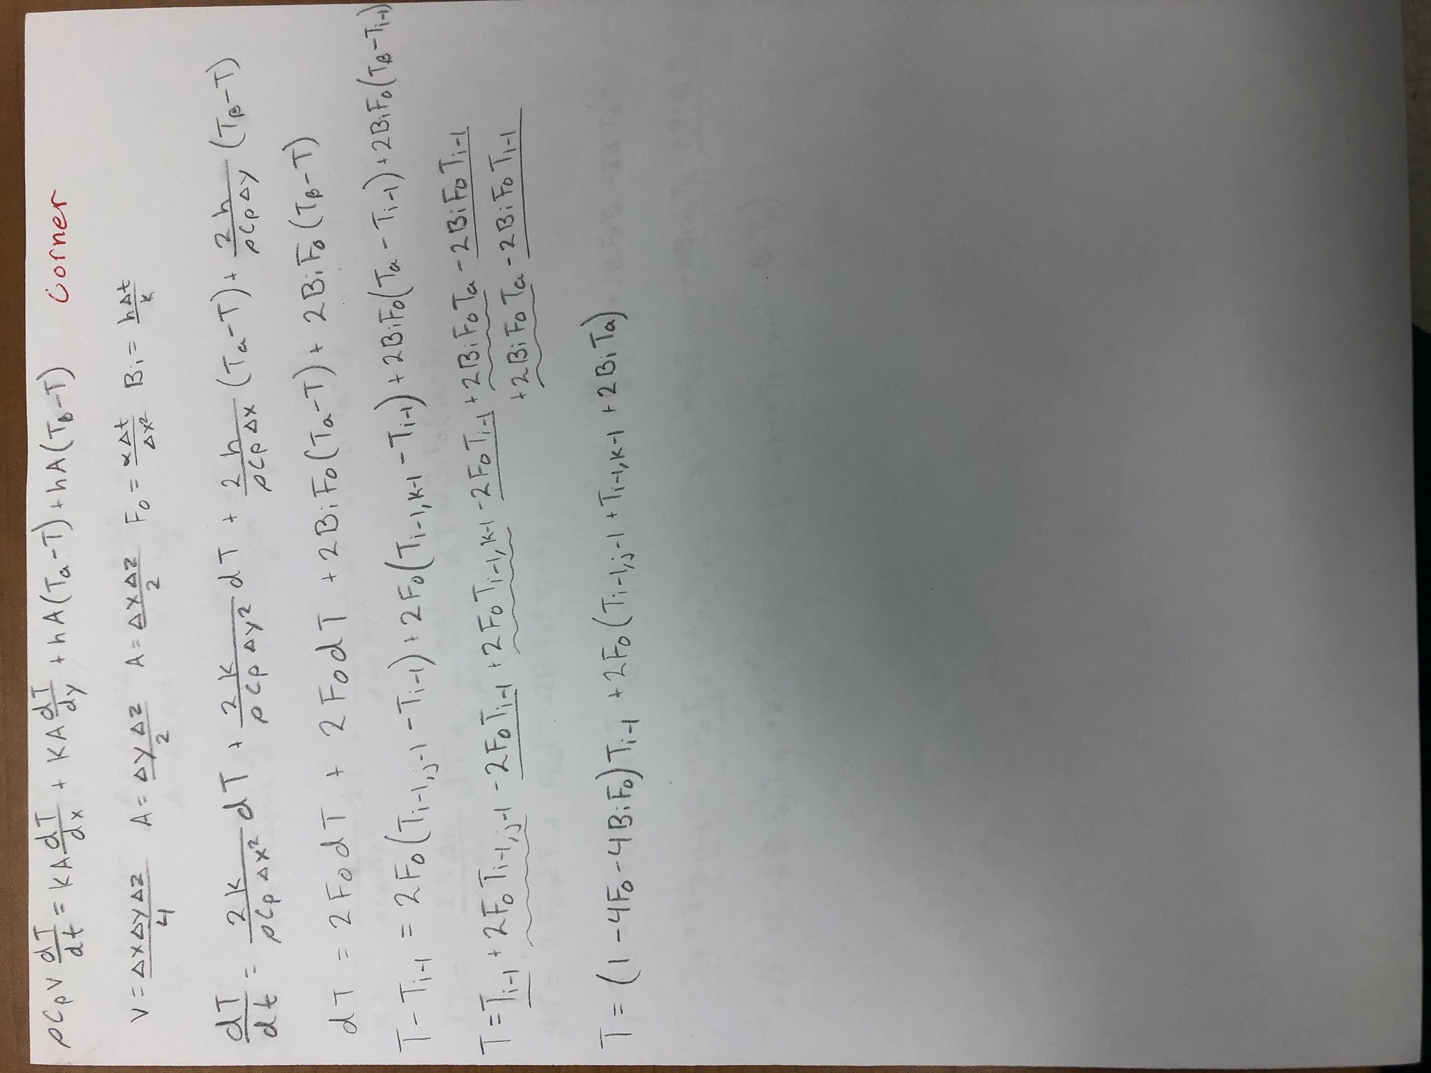 ρCpV dT/dt = KA dT/dx + KA dT/dy + hA(Ta-T) + hA(TB-T) Corner
V = ΔxΔyΔz/4 A = ΔyΔz/2 A = ΔxΔz/2 Fo = αΔt/Δx² Bi = hΔt/k
dT/dt = 2k/ρCpΔx² dT + 2k/ρCpΔy² dT + 2h/ρCpΔx (Ta-T) + 2h/ρCpΔy (TB-T)
dT = 2FodT + 2FodT + 2BiFo(Ta-T) + 2BiFo(TB-T)
T-Ti-1 = 2Fo(Ti-1,j-1 - Ti-1) + 2Fo(Ti-1,k-1 - Ti-1) + 2BiFo(Ta-Ti-1) + 2BiFo(TB-Ti-1)
T = Ti-1 + 2FoTi-1,j-1 - 2FoTi-1 + 2FoTi-1,k-1 - 2FoTi-1 + 2BiFoTa - 2BiFoTi-1
+2BiFoTa - 2BiFoTi-1
T = (1-4Fo-4BiFo)Ti-1 + 2Fo(Ti-1,j-1 + Ti-1,k-1 + 2BiTa)